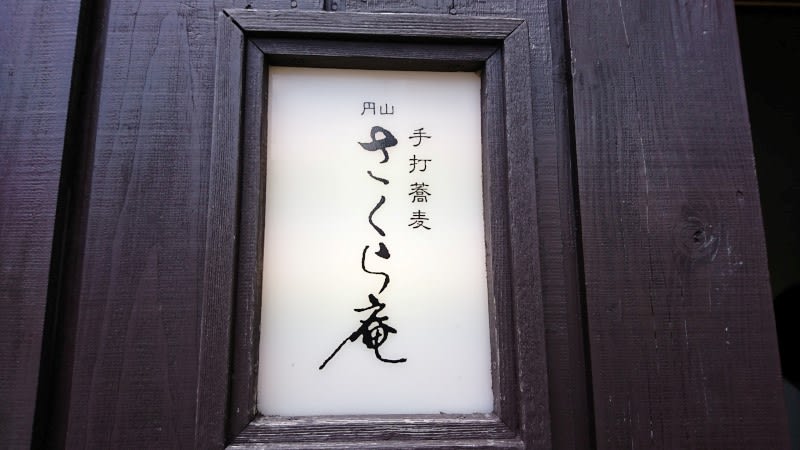 手打蕎麦
円山
さくら庵